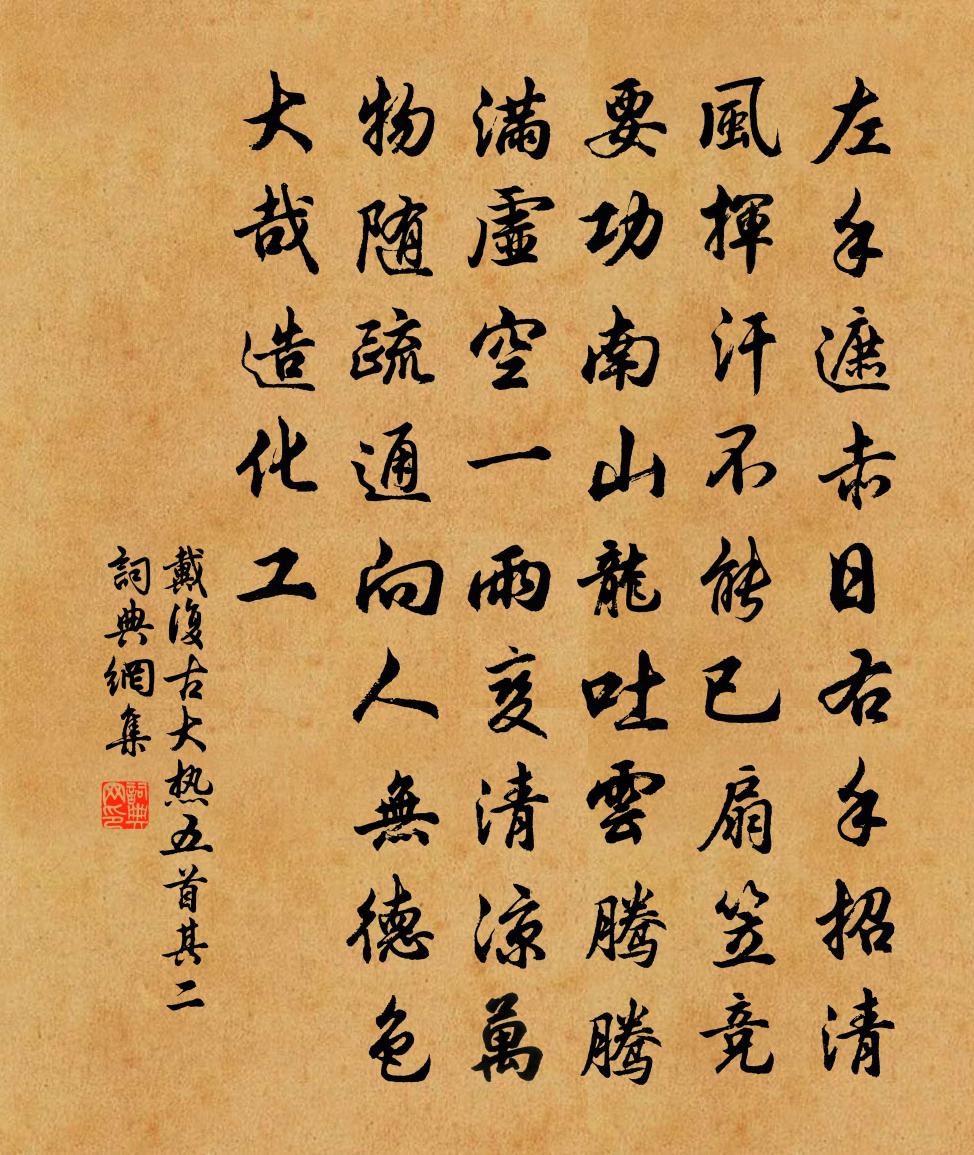 左手遮赤日右手招清
風揮汗不能已扇笠竞
要功南山龍吐雲騰騰
滿虛空一雨変清涼萬
物随疏通向人無德色
大哉造化工
戴復古大热五首其二
詞典網集
詞典网印